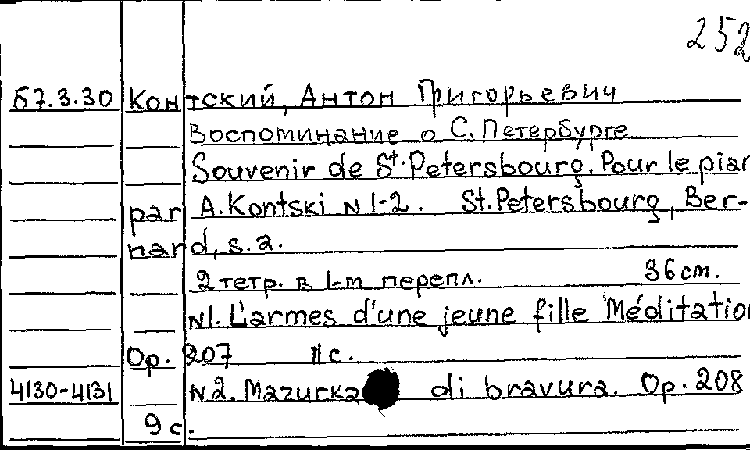 252
Б7.3.30 Контский, Антон Григорьевич
Воспоминание о С. Петербурге
Souvenir de St. Petersbourg. Pour le pian
par A. Kontski N 1-2. St. Petersbourg, Ber-
nard, s. a.
2 тетр. в 1-m перепл. 36 cm.
N1. L'armes d'une jeune fille Méditation
Op. 207 11 c.
4130-4131 N2. Mazurka di bravura. Op. 208
9 c.